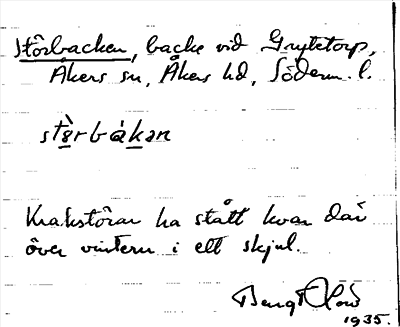 Störbacken, backe vid Grytetorp,
Åkers sn, Åkers hd, Söderm. l.
stèrbákan
Krakstörar ha stått kvar där
över vintern i ett skjul.
Bengt
1935.